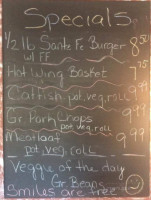 Specials
1/2 lb Sante Fe Burger 8.50
w/ FF
Hot Wing Basket 7.95
Catfish pot, veg, roll 9.99
Gr. Pork Chops 9.99
pot, veg, roll
Meatloaf 9.99
pot, veg, roll
Veggie of the day
Gr. Beans
Smiles are free